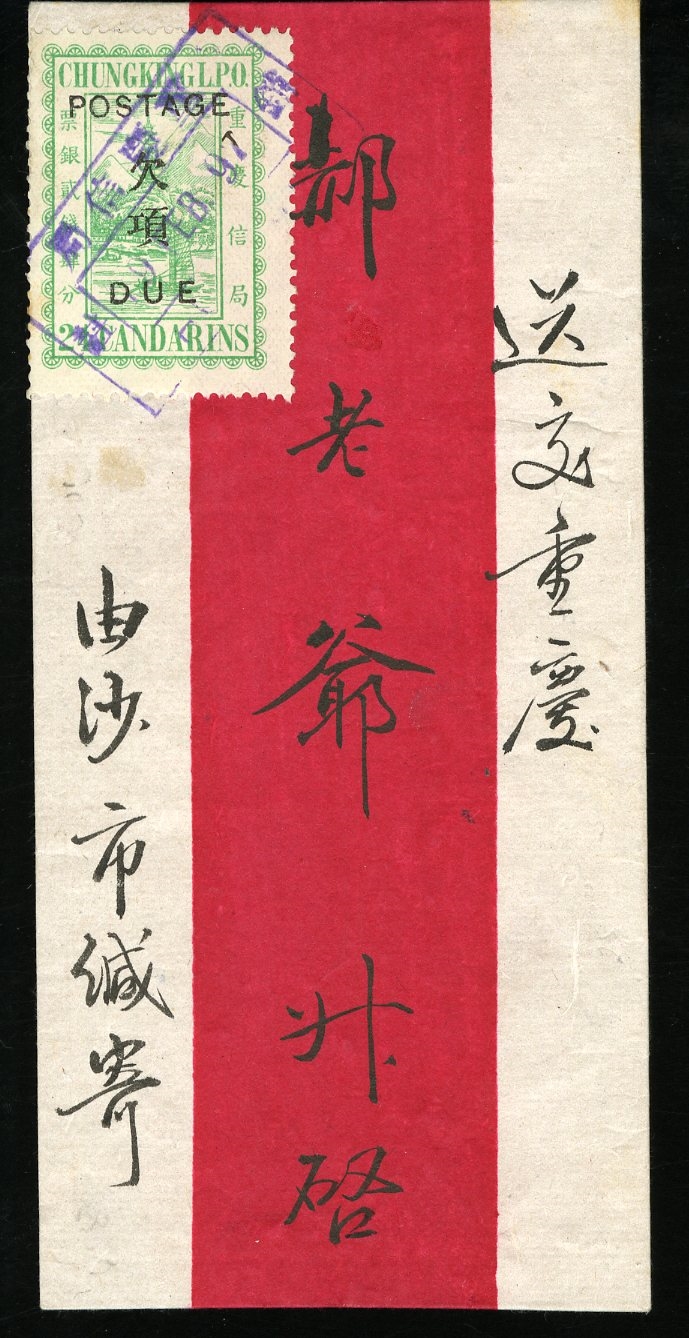 送交重慶
郝老爺升啓
由沙市緘寄
CHUNGKING L.P.O.
POSTAGE
欠項
DUE
24 CANDARINS
重慶信局
票銀貳錢肆分
信局
FEB 97